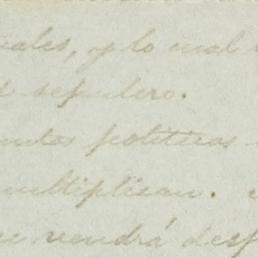 uales, y lo cual
sepulcro.
políticas
multiplican.
vendrá desp